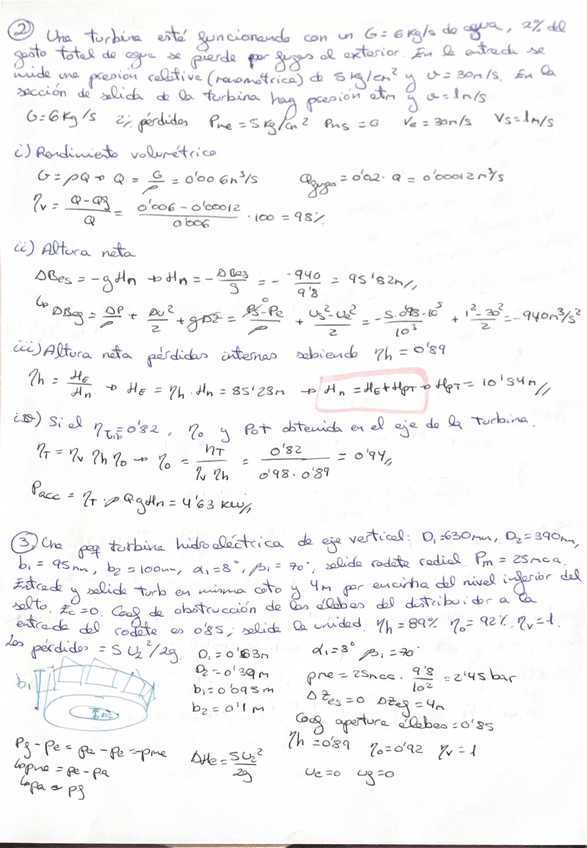 ② Una turbina está funcionando con un G = 6 kg/s de agua, 2% del
gasto total de agua se pierde por fugas al exterior. En la entrada se
mide una presión relativa (manométrica) de 5 kg/cm² y v = 30 m/s. En la
sección de salida de la turbina hay presión atm y v = 1 m/s
G = 6 kg/s 2% pérdidas Pme = 5 kg/cm² Pms = 0 Ve = 30 m/s Vs = 1 m/s
i) Rendimiento volumétrico
G = ρQ → Q = G/ρ = 0'006 m³/s Qfugas = 0'02 · Q = 0'00012 m³/s
ηv = (Q - Qf)/Q = (0'006 - 0'00012)/0'006 · 100 = 98%
ii) Altura neta
ΔBes = -gHn → Hn = -ΔBes/g = - -940/9'8 = 95'82 m//
↳ ΔBes = ΔP/ρ + Δv²/2 + gΔz = (Ps - Pe)/ρ + (vs² - ve²)/2 = -5·098·10⁵/10³ + (1² - 30²)/2 = -940 m²/s²
iii) Altura neta pérdidas internas sabiendo ηh = 0'89
ηh = HE/Hn → HE = ηh · Hn = 85'28 m → Hn = HE + HPT → HPT = 10'54 m//
iv) Si el ηT = 0'82, η0 y Pot obtenida en el eje de la turbina.
ηT = ηv ηh η0 → η0 = ηT/(ηv ηh) = 0'82/(0'98 · 0'89) = 0'94//
Pacc = ηT · ρQgHn = 4'63 kW//
③ Una peq turbina hidroeléctrica de eje vertical: D1 = 630 mm, D2 = 390 mm,
b1 = 95 mm, b2 = 100 mm, α1 = 8°, β1 = 70°, salida rodete radial. Pm = 25 mca.
Entrada y salida turb en misma cota y 4 m por encima del nivel inferior del
salto. Ec = 0. Coef de obstrucción de los álabes del distribuidor a la
entrada del rodete es 0'85; salida la unidad. ηh = 89% η0 = 92% ηv = 1.
Las pérdidas = 5 U2²/2g.
D1 = 0'63 m α1 = 8° β1 = 70°
D2 = 0'39 m pme = 25 mca · 9'8/10² = 2'45 bar
b1 = 0'095 m ΔZes = 0 ΔZsg = 4 m
b2 = 0'1 m Coef apertura álabes = 0'85
b1
ηh = 0'89 η0 = 0'92 ηv = 1
Pg - Pe = pa - pe = -pme
ΔHe = 5U2²/2g
ve = 0 vg = 0
↳ pme = pe - pa
↳ pa = pg